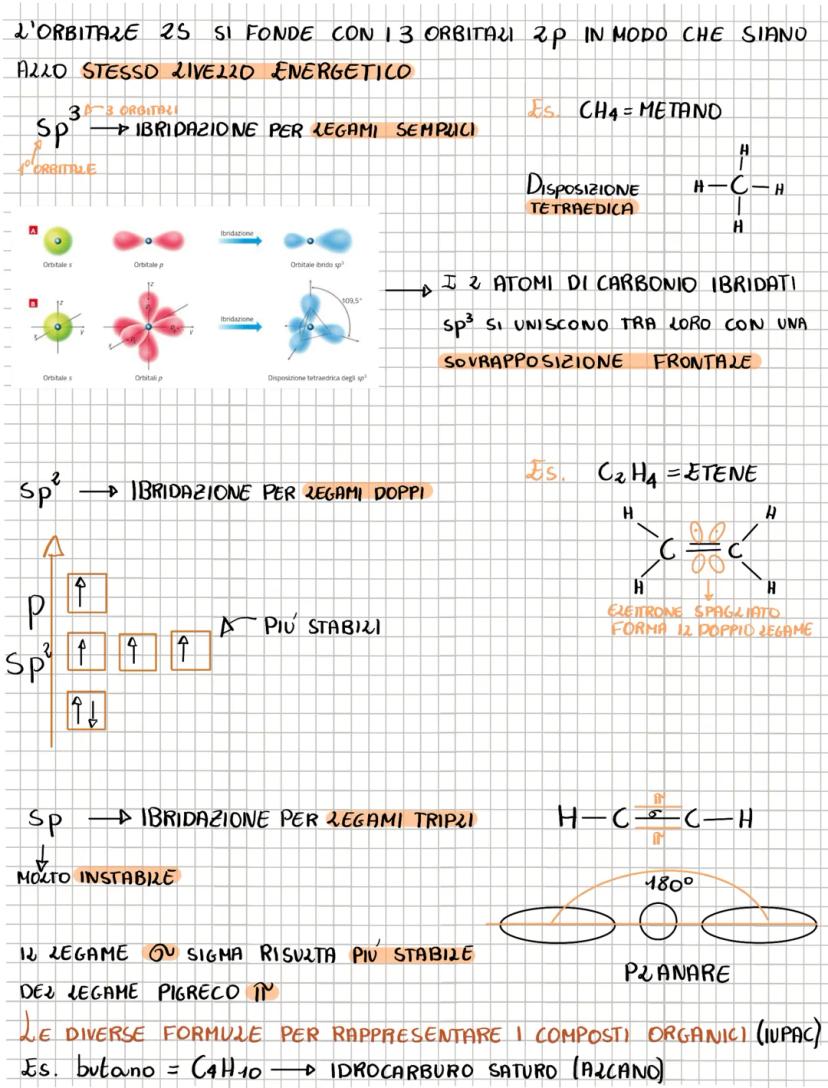 L'ORBITALE 2S SI FONDE CON I 3 ORBITALI 2P IN MODO CHE SIANO
ALLO STESSO LIVELLO ENERGETICO
Sp³ → 3 ORBITALI
→ IBRIDAZIONE PER LEGAMI SEMPLICI
1° ORBITALE
Es. CH4 = METANO
DISPOSIZIONE
TETRAEDICA
H
H — C — H
H
A
Ibridazione
Orbitale s
Orbitale p
Orbitale ibrido sp³
B
z
y
x
z
Pz
Py
Px
Ibridazione
109,5°
Orbitale s
Orbitali p
Disposizione tetraedrica degli sp³
→ I 2 ATOMI DI CARBONIO IBRIDATI
Sp³ SI UNISCONO TRA LORO CON UNA
SOVRAPPOSIZIONE FRONTALE
Sp² → IBRIDAZIONE PER LEGAMI DOPPI
Es. C2H4 = ETENE
H H
C = C
H H
ELEITRONE SPAGLIATO
FORMA IL DOPPIO LEGAME
P ↑
Sp² ↑ ↑ ↑
PIÙ STABILI
↑↓
Sp → IBRIDAZIONE PER LEGAMI TRIPLI
MOLTO INSTABILE
π
H — C σ C — H
π
180°
PLANARE
IL LEGAME σ SIGMA RISULTA PIÙ STABILE
DEL LEGAME PIGRECO π
LE DIVERSE FORMULE PER RAPPRESENTARE I COMPOSTI ORGANICI (IUPAC)
Es. butano = C4H10 → IDROCARBURO SATURO (ALCANO)